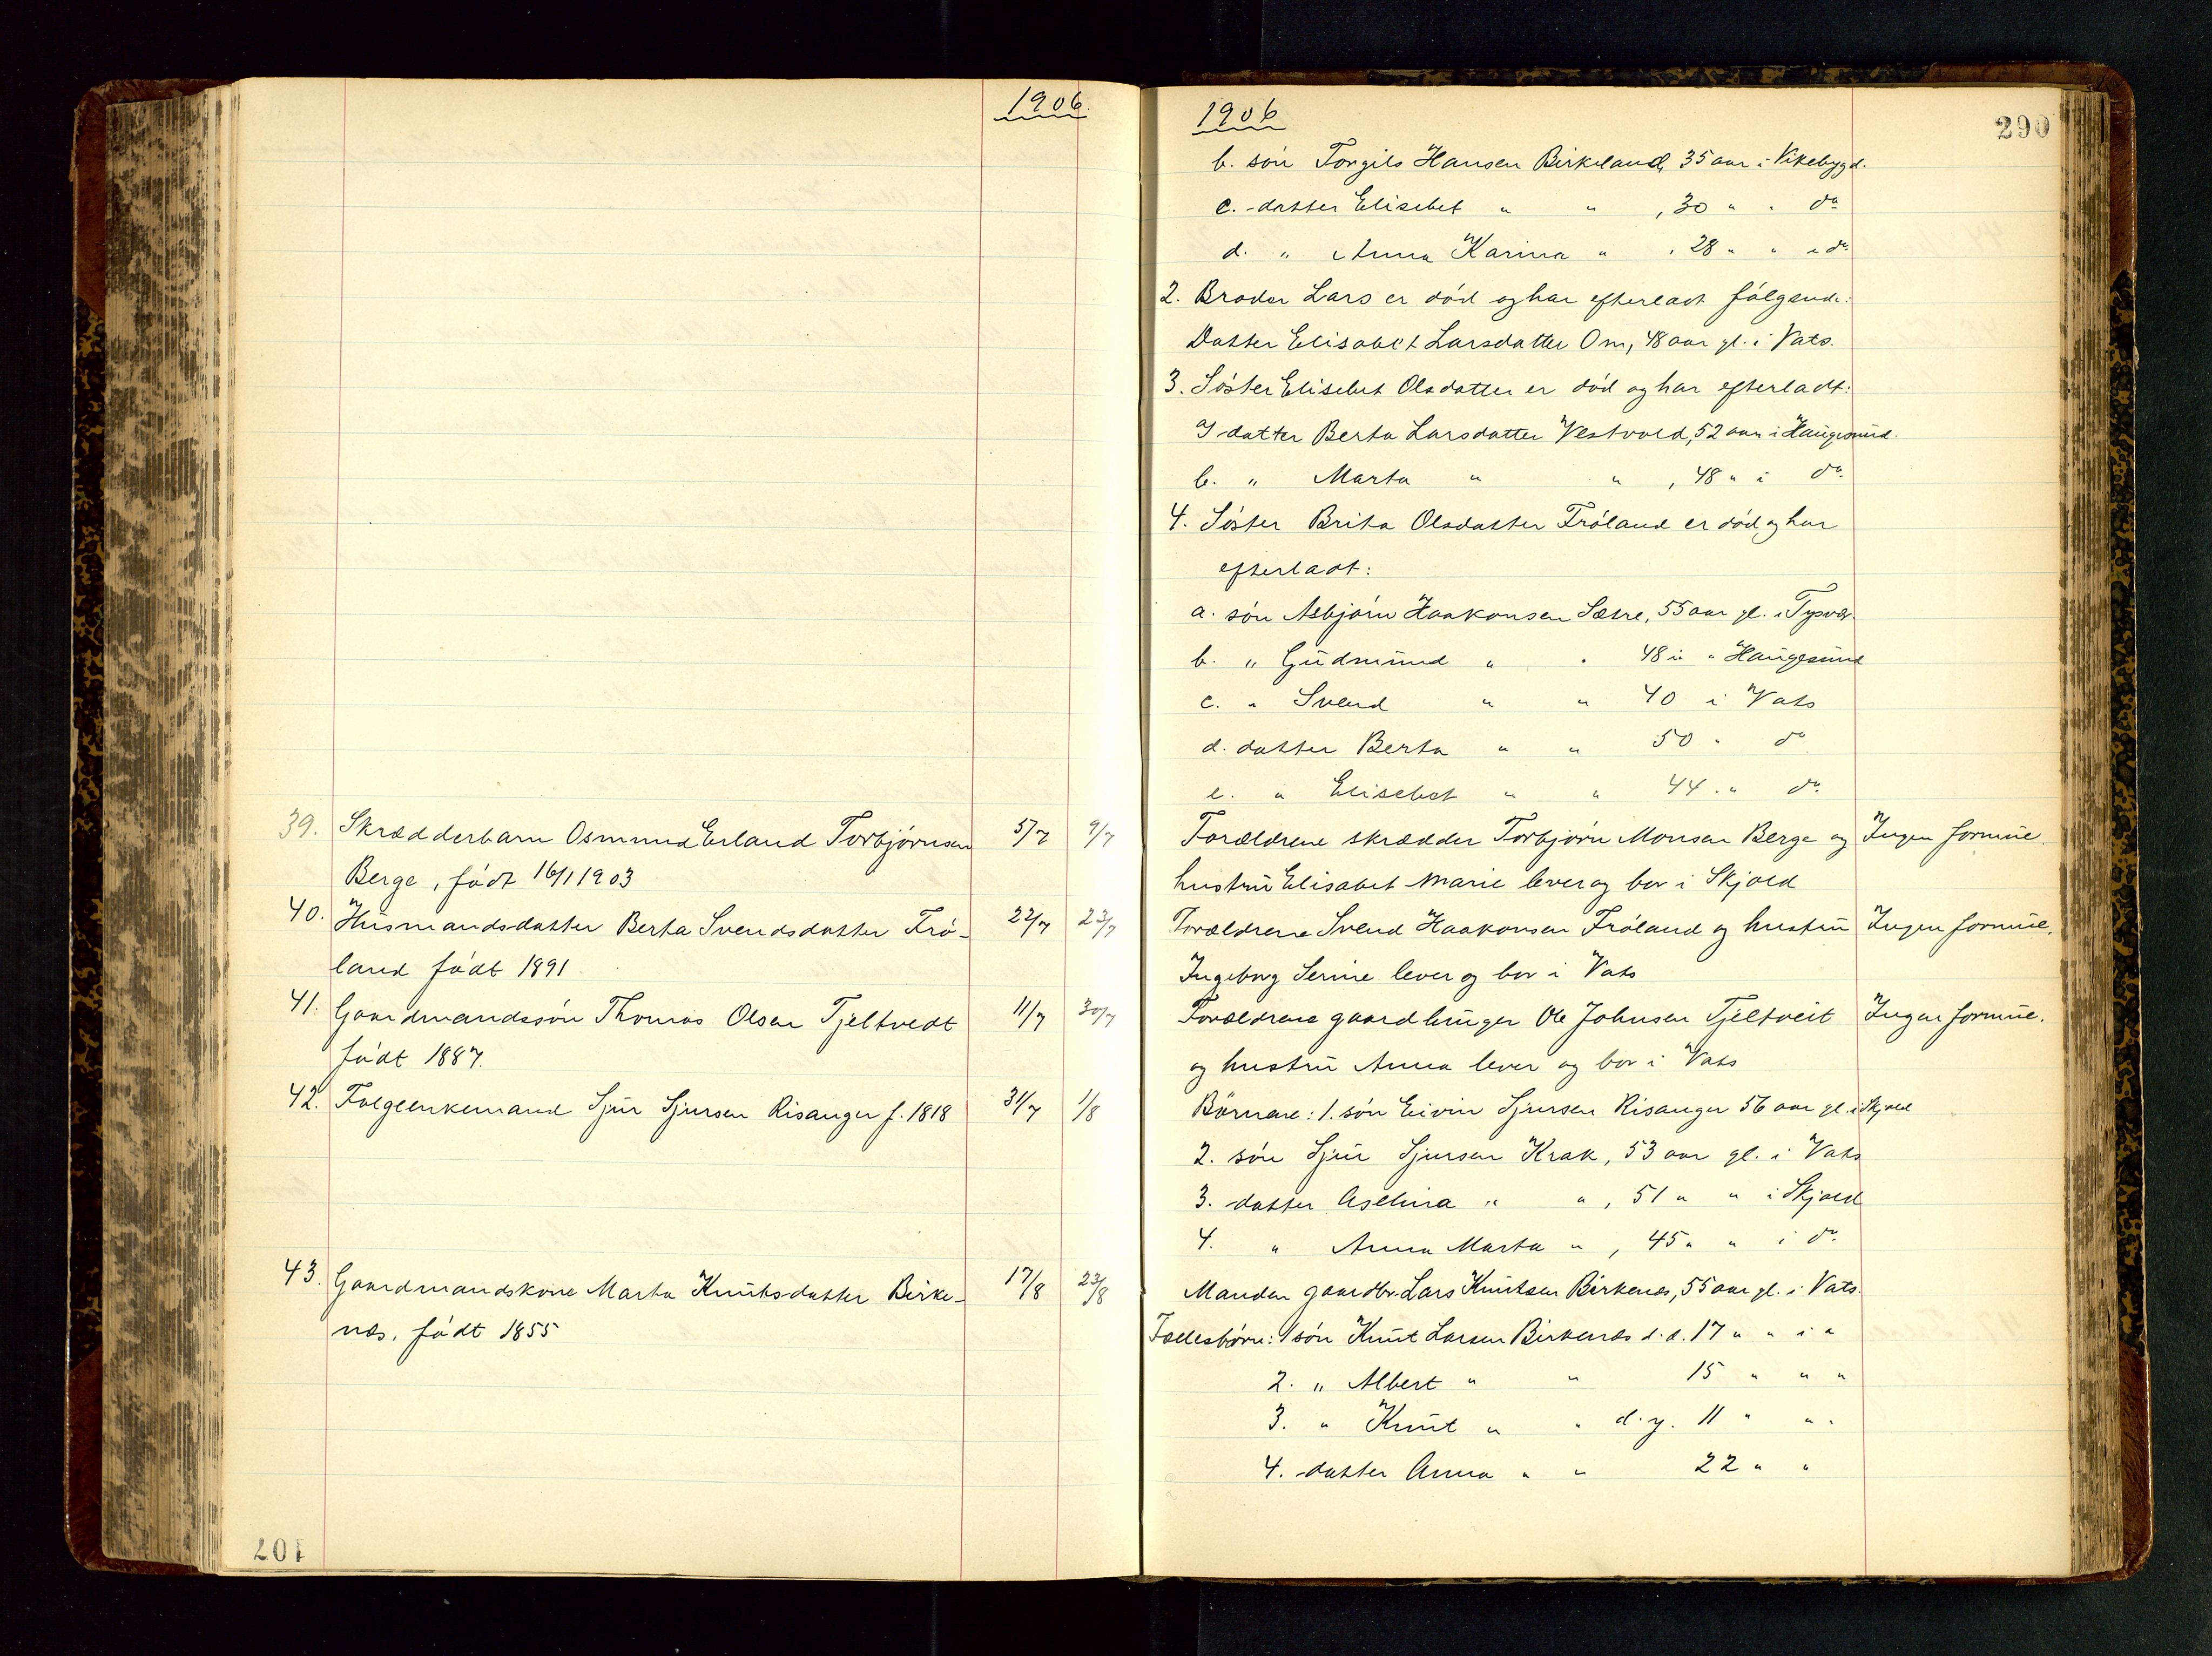 1906.
39. Skrædderbarn Osmund Erland Torbjørnsen 5/7 9/7
Berge, født 16/1 1903
40. Husmandsdatter Berta Svendsdatter Frø- 22/7 23/7
land født 1891
41. Gaardmandssøn Thomas Olsen Tjeltvedt 11/7 30/7
født 1887.
42. Folgeenkemand Sjur Sjursen Risanger f. 1818 31/7 1/8
43. Gaardmandskone Marta Knutsdatter Birke- 17/8 23/8
næs, født 1855
201
1906
290
b. søn Torgils Hansen Birkeland, 35 aar i Vikebygd.
c. datter Elisebet " " , 30 " " do
d. " Anna Karina " , 28 " " i do
2. Broder Lars er død og har efterladt følgende:
Datter Elisabet Larsdatter Om, 48 aar gl. i Vats.
3. Søster Elisebet Olsdatter er død og har efterladt:
datter Berta Larsdatter Vestvold, 52 aar i Haugesund.
b. " Marta " " , 48 " i do
4. Søster Brita Olsdatter Frøland er død og har
efterladt:
a. søn Asbjørn Haakonsen Sætre, 55 aar gl. i Tysvær.
b. " Gudmund " " 48 " " Haugesund
c. " Svend " " 40 i Vats
d. datter Berta " " 50 " do
e. " Elisebet " " 44 " " do
Forældrene skrædder Torbjørn Monsen Berge og Ingen formue.
hustru Elisabet Marie lever og bor i Skjold
Forældrene Svend Haakonsen Frøland og hustru Ingen formue.
Ingeborg Serine lever og bor i Vats
Forældrene gaardbruger Ole Johnsen Tjeltveit Ingen formue.
og hustru Anna lever og bor i Vats
Børnene: 1. søn Eivin Sjursen Risanger 56 aar gl. i Skjold
2. søn Sjur Sjursen Krak, 53 aar gl. i Vats
3. datter Aselina " " , 51 " " i Skjold
4. " Anna Marta " , 45 " " i do
Manden gaardbr. Lars Knutsen Birkenæs, 55 aar gl. i Vats.
Fællesbørn: 1 søn Knut Larsen Birkenæs d. æ. 17 " " i "
2. " Albert " " 15 " " "
3. " Knut " " d. y. 11 " " "
4. datter Anna " " 22 " "